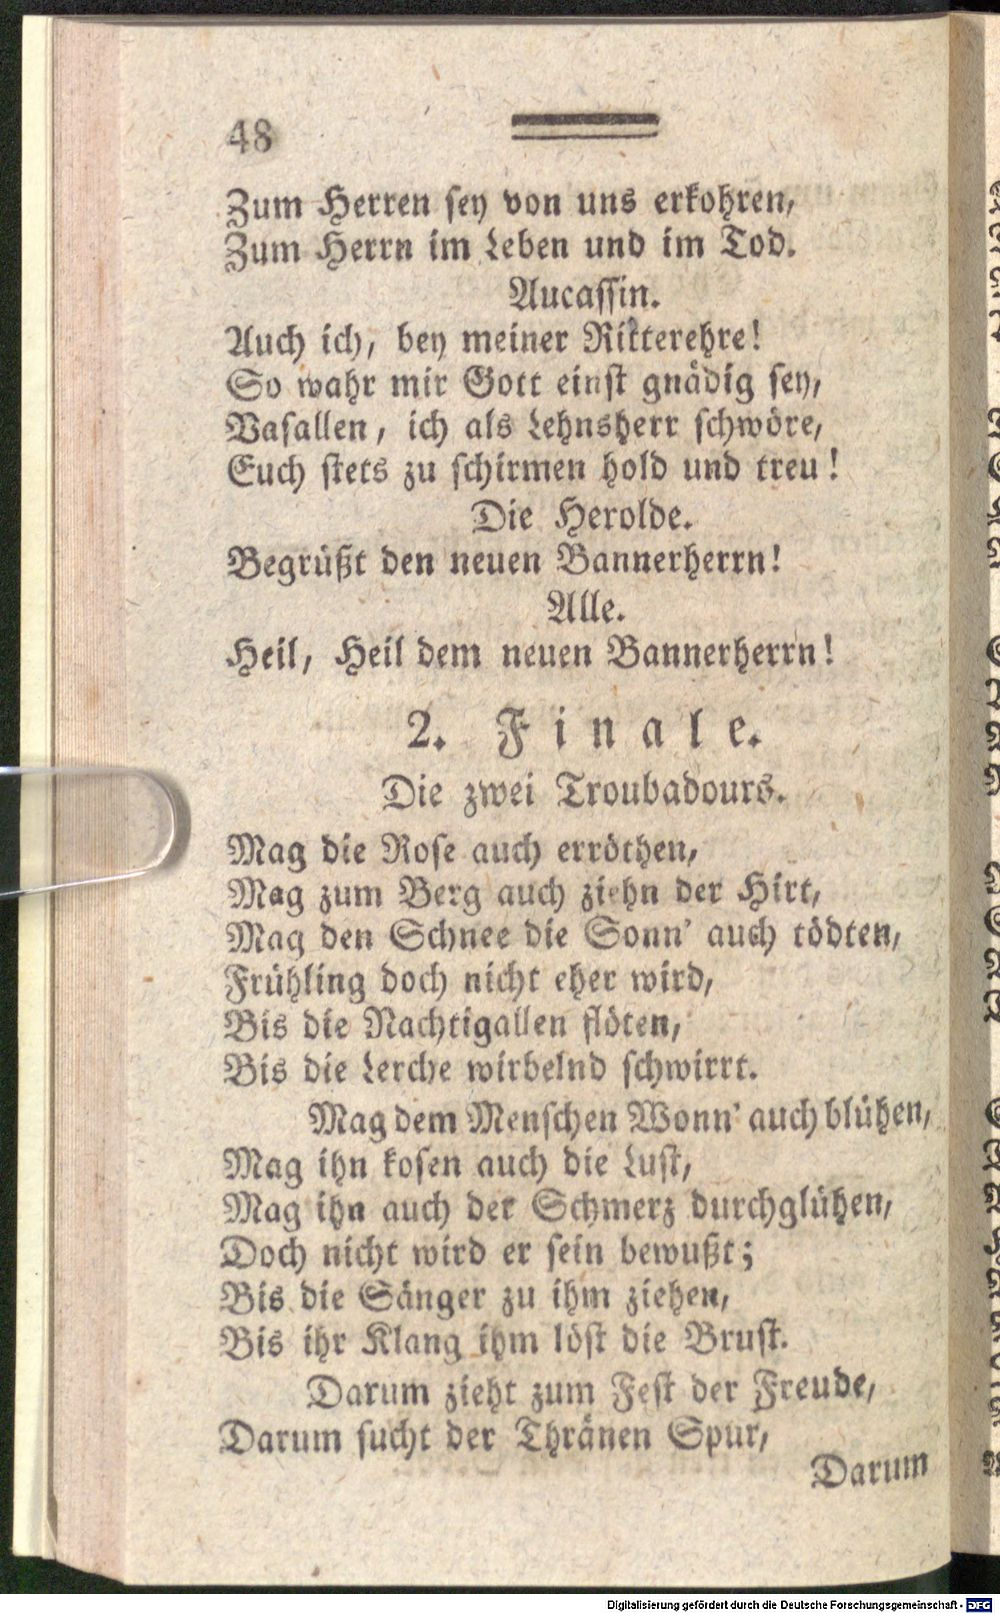 48
Zum Herren sey von uns erkohren,
Zum Herrn im Leben und im Tod.
Aucassin.
Auch ich, bey meiner Ritterehre!
So wahr mir Gott einst gnädig sey,
Vasallen, ich als Lehnsherr schwöre,
Euch stets zu schirmen hold und treu!
Die Herolde.
Begrüßt den neuen Bannerherrn!
Alle.
Heil, Heil dem neuen Bannerherrn!
2. Finale.
Die zwei Troubadours.
Mag die Rose auch erröthen,
Mag zum Berg auch ziehn der Hirt,
Mag den Schnee die Sonn' auch tödten,
Frühling doch nicht eher wird,
Bis die Nachtigallen flöten,
Bis die Lerche wirbelnd schwirrt.
Mag dem Menschen Wonn' auch blühen,
Mag ihn kosen auch die Lust,
Mag ihn auch der Schmerz durchglühen,
Doch nicht wird er sein bewußt;
Bis die Sänger zu ihm ziehen,
Bis ihr Klang ihm löst die Brust.
Darum zieht zum Fest der Freude,
Darum sucht der Thränen Spur,
Darum
Digitalisierung gefördert durch die Deutsche Forschungsgemeinschaft - DFG